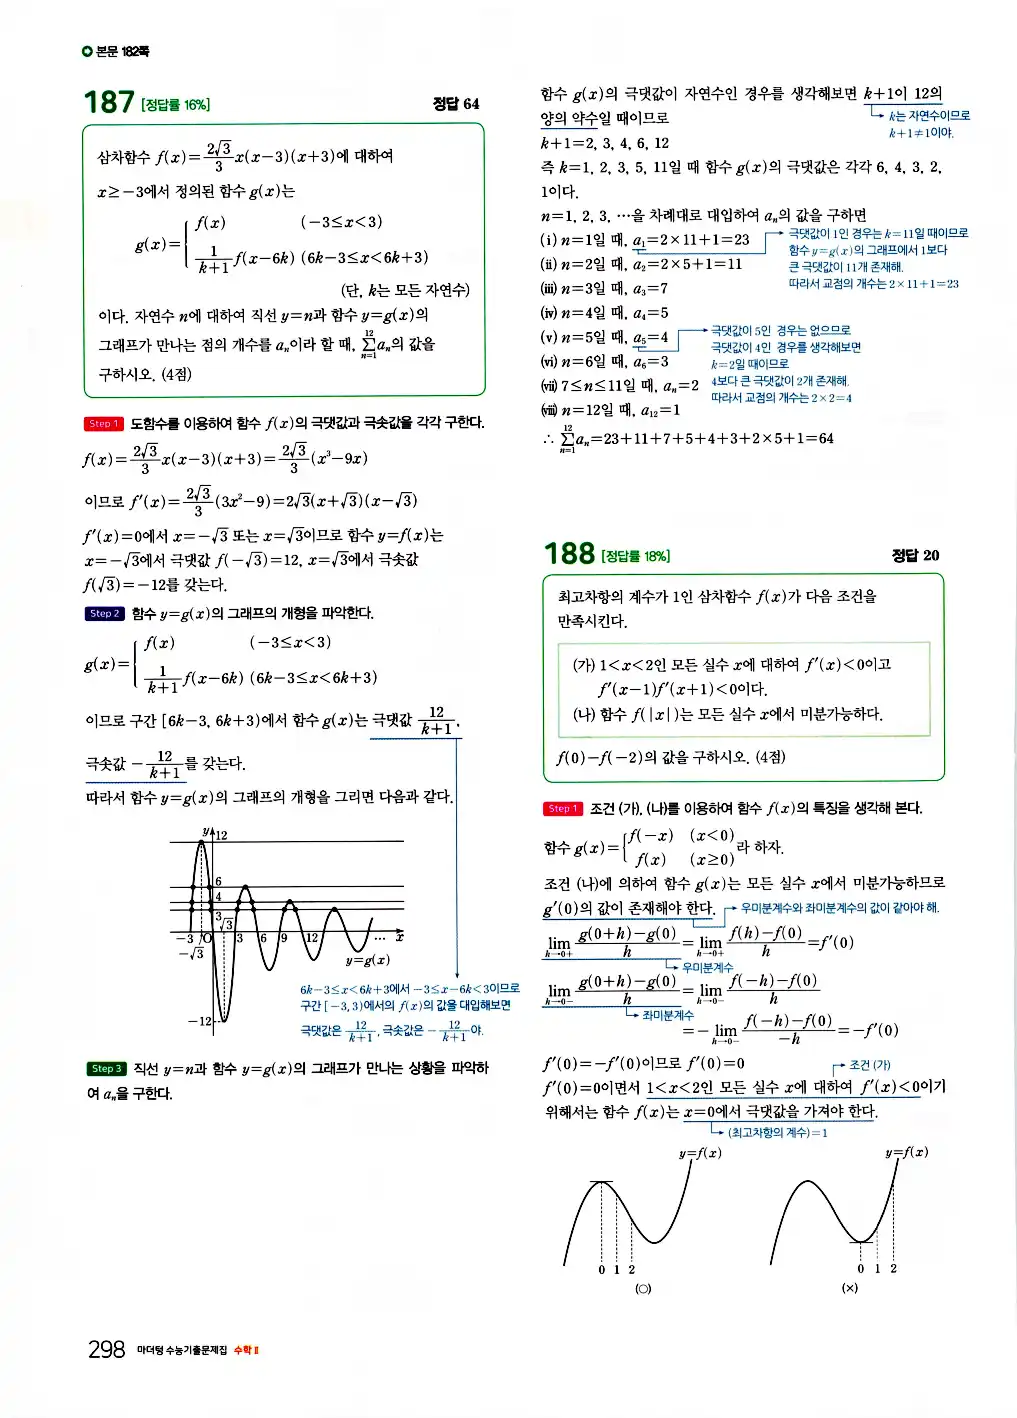 본문 182쪽
187 [정답률 16%] 정답 64
삼차함수 f(x)=2√3/3 x(x-3)(x+3)에 대하여
x≥-3에서 정의된 함수 g(x)는
g(x)={ f(x) (-3≤x<3)
1/(k+1) f(x-6k) (6k-3≤x<6k+3)
(단, k는 모든 자연수)
이다. 자연수 n에 대하여 직선 y=n과 함수 y=g(x)의
그래프가 만나는 점의 개수를 aₙ이라 할 때, Σ(n=1→12) aₙ의 값을
구하시오. (4점)
Step 1 도함수를 이용하여 함수 f(x)의 극댓값과 극솟값을 각각 구한다.
f(x)=2√3/3 x(x-3)(x+3)=2√3/3 (x³-9x)
이므로 f'(x)=2√3/3 (3x²-9)=2√3(x+√3)(x-√3)
f'(x)=0에서 x=-√3 또는 x=√3이므로 함수 y=f(x)는
x=-√3에서 극댓값 f(-√3)=12, x=√3에서 극솟값
f(√3)=-12를 갖는다.
Step 2 함수 y=g(x)의 그래프의 개형을 파악한다.
g(x)={ f(x) (-3≤x<3)
1/(k+1) f(x-6k) (6k-3≤x<6k+3)
이므로 구간 [6k-3, 6k+3)에서 함수 g(x)는 극댓값 12/(k+1),
극솟값 -12/(k+1)를 갖는다.
따라서 함수 y=g(x)의 그래프의 개형을 그리면 다음과 같다.
y 12
6
4
3
-3 O √3 3 6 9 12 ... x
-√3
y=g(x)
-12
6k-3≤x<6k+3에서 -3≤x-6k<3이므로
구간 [-3, 3)에서의 f(x)의 값을 대입해보면
극댓값은 12/(k+1), 극솟값은 -12/(k+1)야.
Step 3 직선 y=n과 함수 y=g(x)의 그래프가 만나는 상황을 파악하
여 aₙ을 구한다.
298 마더텅 수능기출문제집 수학 II
함수 g(x)의 극댓값이 자연수인 경우를 생각해보면 k+1이 12의
양의 약수일 때이므로
k는 자연수이므로
k+1≠1이야.
k+1=2, 3, 4, 6, 12
즉 k=1, 2, 3, 5, 11일 때 함수 g(x)의 극댓값은 각각 6, 4, 3, 2,
1이다.
n=1, 2, 3, ⋯을 차례대로 대입하여 aₙ의 값을 구하면
(i) n=1일 때, a₁=2×11+1=23
극댓값이 1인 경우는 k=11일 때이므로
함수 y=g(x)의 그래프에서 1보다
큰 극댓값이 11개 존재해.
따라서 교점의 개수는 2×11+1=23
(ii) n=2일 때, a₂=2×5+1=11
(iii) n=3일 때, a₃=7
(iv) n=4일 때, a₄=5
(v) n=5일 때, a₅=4
극댓값이 5인 경우는 없으므로
극댓값이 4인 경우를 생각해보면
k=2일 때이므로
4보다 큰 극댓값이 2개 존재해.
따라서 교점의 개수는 2×2=4
(vi) n=6일 때, a₆=3
(vii) 7≤n≤11일 때, aₙ=2
(viii) n=12일 때, a₁₂=1
∴ Σ(n=1→12) aₙ=23+11+7+5+4+3+2×5+1=64
188 [정답률 18%] 정답 20
최고차항의 계수가 1인 삼차함수 f(x)가 다음 조건을
만족시킨다.
(가) 1<x<2인 모든 실수 x에 대하여 f'(x)<0이고
f'(x-1)f'(x+1)<0이다.
(나) 함수 f(|x|)는 모든 실수 x에서 미분가능하다.
f(0)-f(-2)의 값을 구하시오. (4점)
Step 1 조건 (가), (나)를 이용하여 함수 f(x)의 특징을 생각해 본다.
함수 g(x)={ f(-x) (x<0)
f(x) (x≥0) 라 하자.
조건 (나)에 의하여 함수 g(x)는 모든 실수 x에서 미분가능하므로
g'(0)의 값이 존재해야 한다. 우미분계수와 좌미분계수의 값이 같아야 해.
lim(h→0+) (g(0+h)-g(0))/h = lim(h→0+) (f(h)-f(0))/h =f'(0)
우미분계수
lim(h→0-) (g(0+h)-g(0))/h = lim(h→0-) (f(-h)-f(0))/h
좌미분계수
=-lim(h→0-) (f(-h)-f(0))/(-h) =-f'(0)
f'(0)=-f'(0)이므로 f'(0)=0 조건 (가)
f'(0)=0이면서 1<x<2인 모든 실수 x에 대하여 f'(x)<0이기
위해서는 함수 f(x)는 x=0에서 극댓값을 가져야 한다.
(최고차항의 계수)=1
y=f(x) y=f(x)
0 1 2 0 1 2
(○) (×)